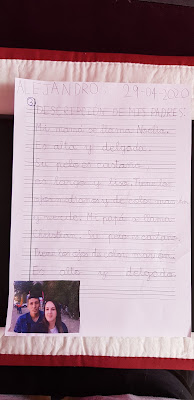 ALEJANDRO 29-04-2020
DESCRIPCIÓN DE MIS PADRES:
Mi mamá se llama Noelia.
Es alta y delgada.
Su pelo es castaño,
es largo y liso. Tiene los
ojos y de color
Mi papá se llama
Su pelo es castaño.
Tiene los ojos de color marrón.
Es alto y delgado.